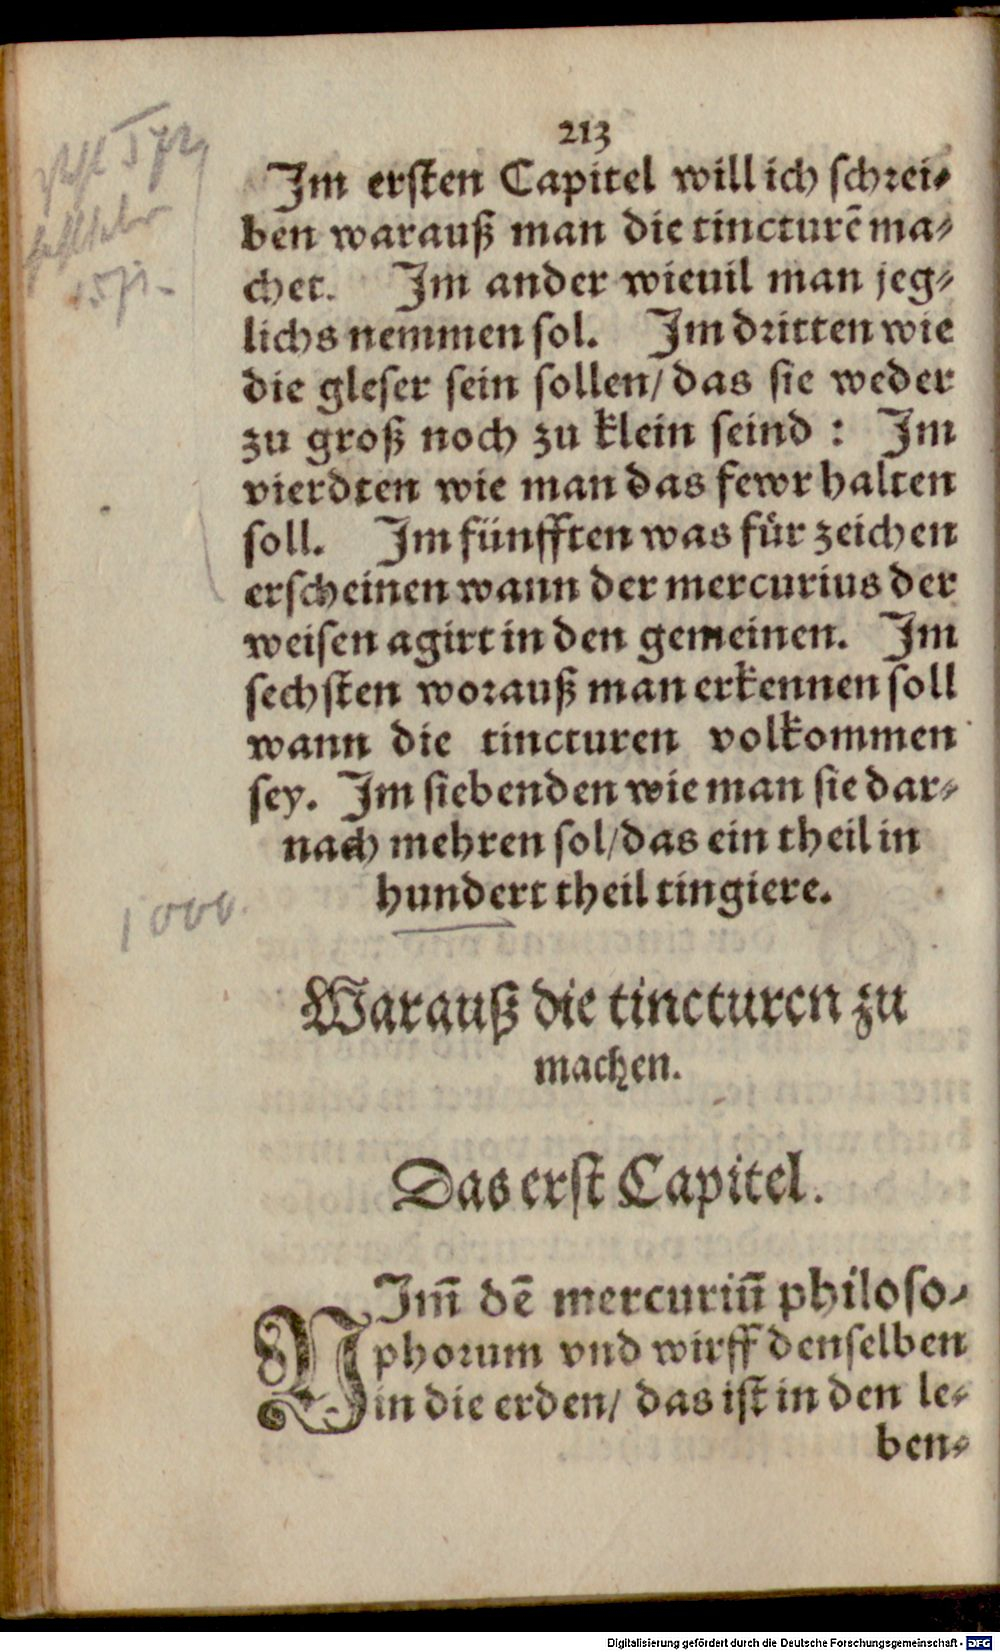 213
Im ersten Capitel will ich schrei⸗
ben warauß man die tincturē ma⸗
chet. Im ander wieuil man jeg⸗
lichs nemmen sol. Im dritten wie
die gleser sein sollen/ das sie weder
zu groß noch zu klein seind : Im
vierdten wie man das fewr halten
soll. Im fünfften was für zeichen
erscheinen wann der mercurius der
weisen agirt in den gemeinen. Im
sechsten worauß man erkennen soll
wann die tincturen volkommen
sey. Im siebenden wie man sie dar⸗
nach mehren sol/das ein theil in
hundert theil tingiere.
1000.
Warauß die tincturen zu
machen.
Das erst Capitel.
NIm̄ dē mercuriū philoso⸗
phorum vnd wirff denselben
in die erden/ das ist in den le⸗
ben⸗
Digitalisierung gefördert durch die Deutsche Forschungsgemeinschaft - DFG